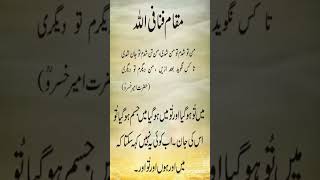 مقام فنا فی اللہ
من تو شدم تو من شدی، من تن شدم تو جاں شدی
تا کس نگوید بعد ازیں ، من دیگرم تو دیگری
(حضرت امیر خسروؒ)
میں تُو ہو گیا اور تُو میں ہو گیا میں جسم ہو گیا تُو
اس کی جان۔ اب کوئی یہ نہیں کہہ سکتا کہ
میں اور ہوں اور تُو اور۔